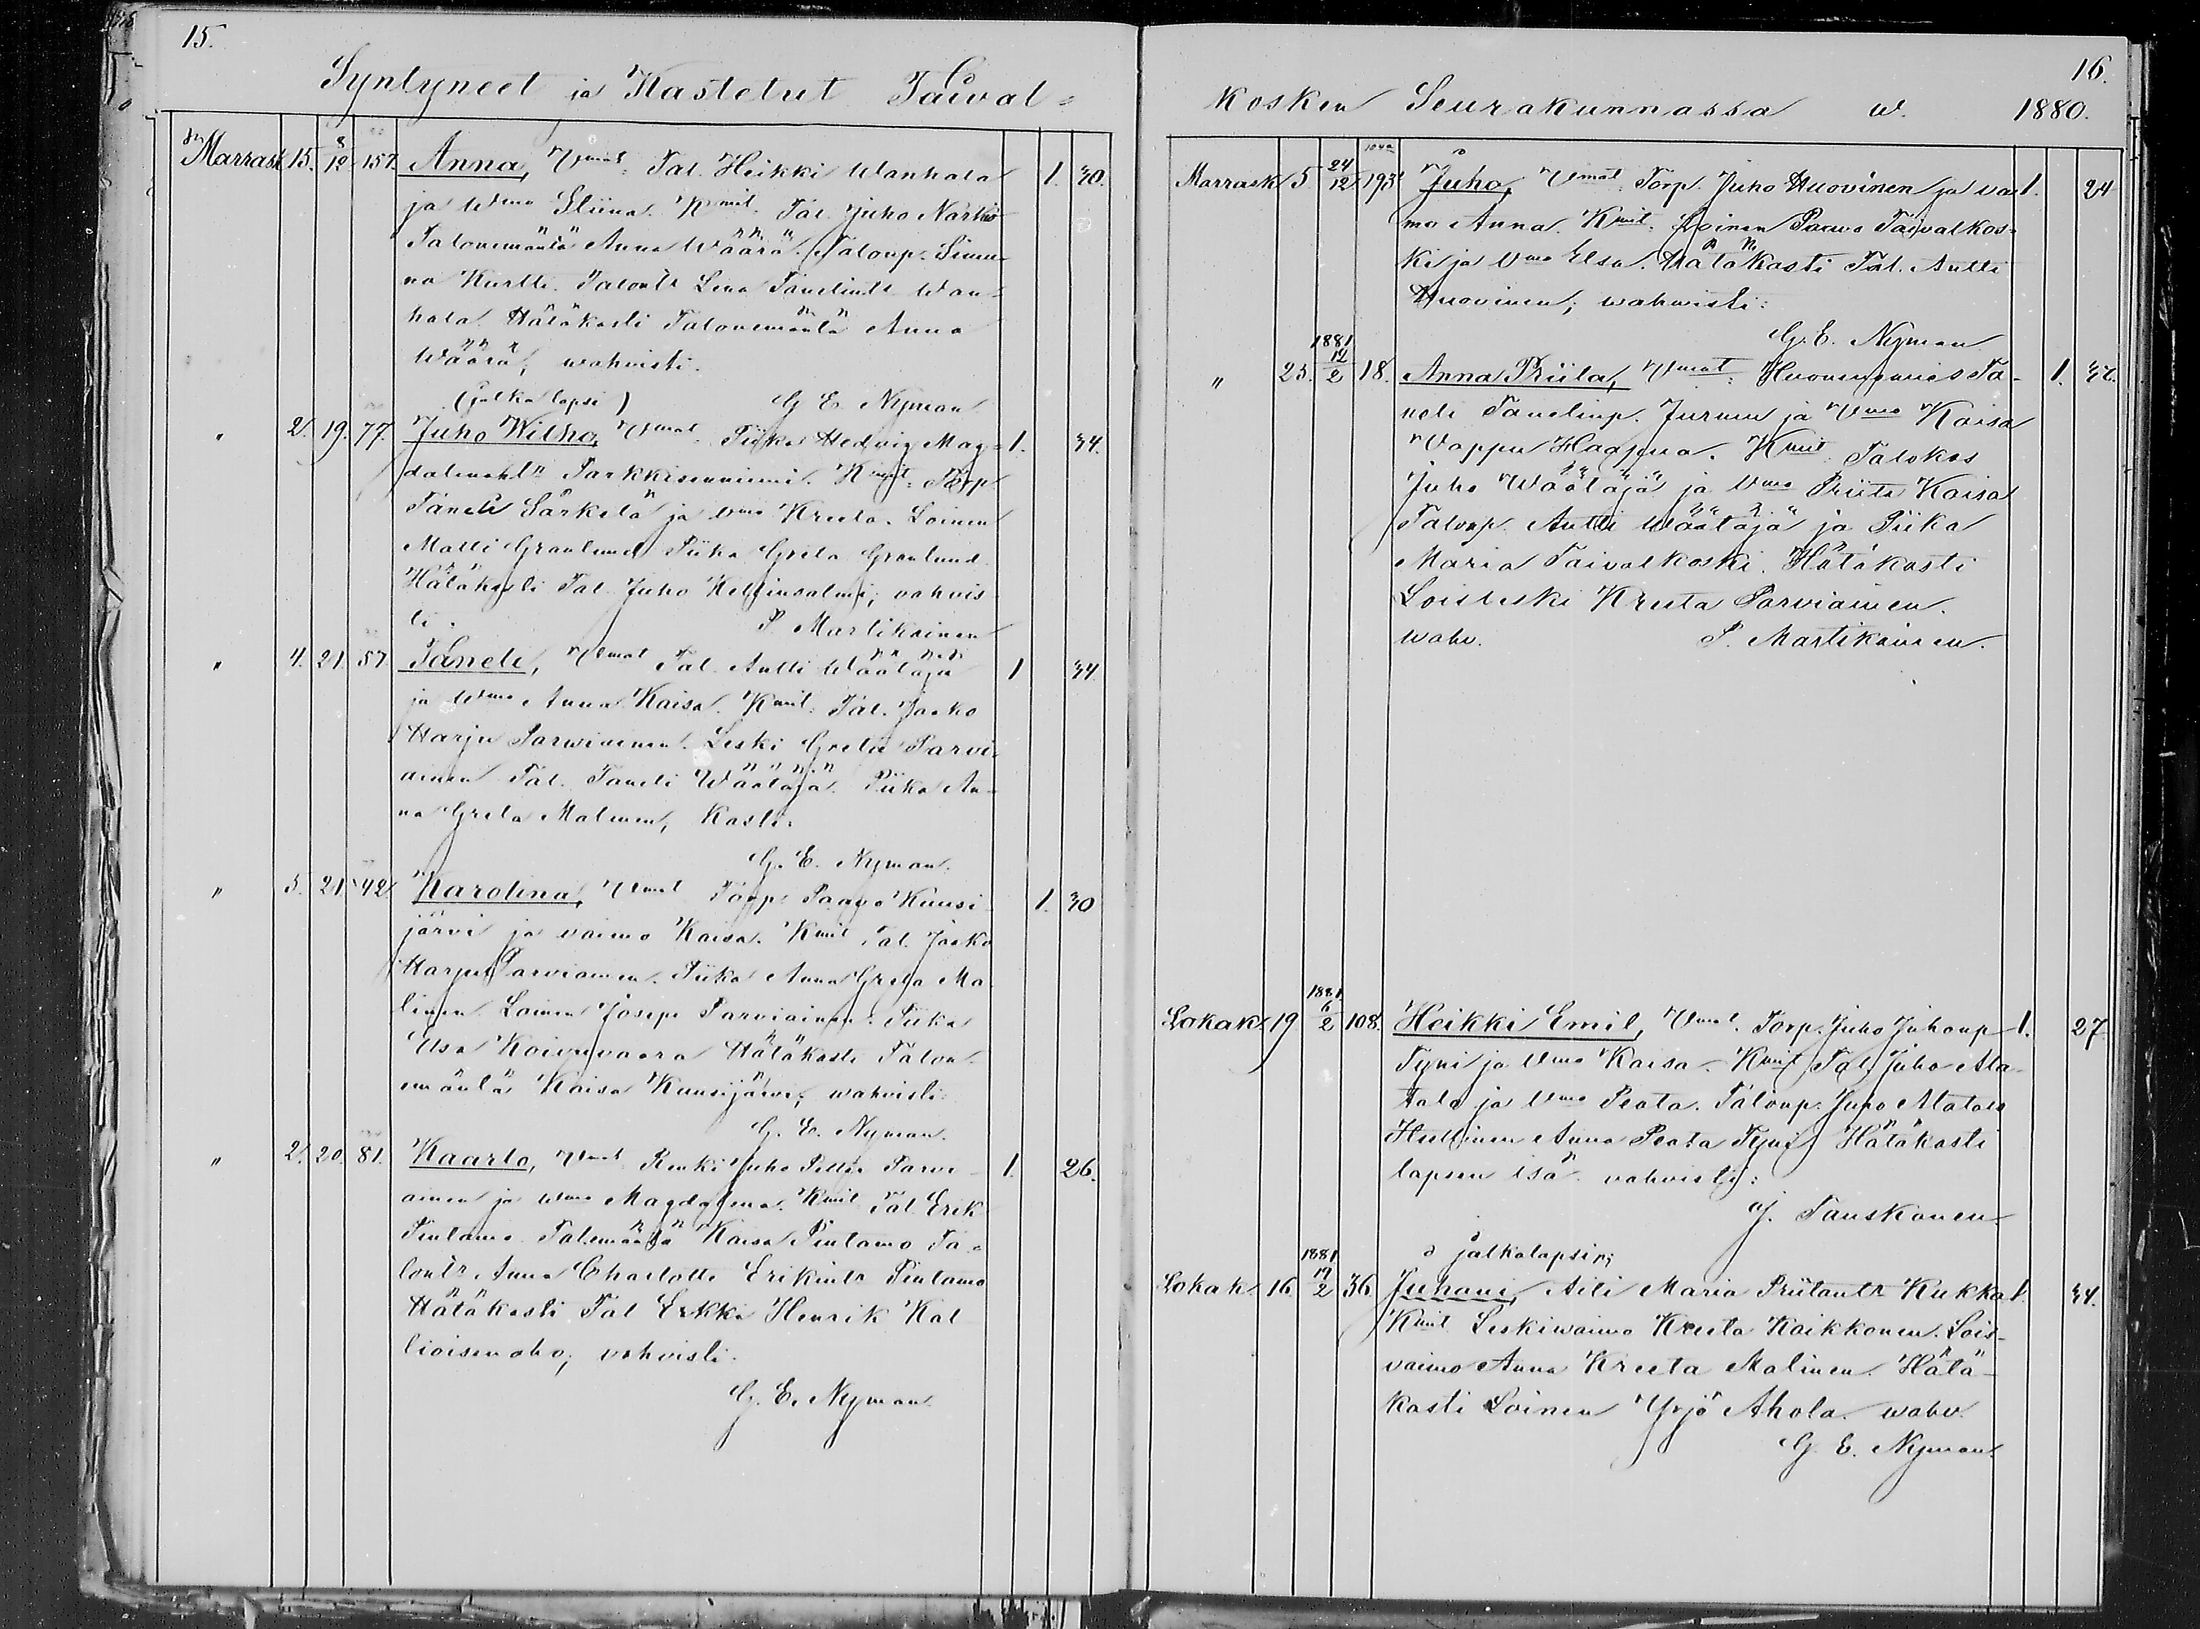 15.
Syntyneet ja Kastetut Taival=
Marrask 15. 8/12 157. Anna, Vmat: Tal. Heikki Wanhala 1. 30.
ja Wmo Eliina. Kmit. Tal. Juho Närhi
Talonemäntä Anna Wäärä. Taloup. Simu-
na Kurtti. Talontr Lena Tanelintr Wan-
hala. Hätäkasti Talonemäntä Anna
Wäärä, wahvisti.
(jalka lapsi) G. E. Nyman
" 2. 19. 77. Juho Wilho, Vmat. Piika Hedvig Mag- 1. 34.
dalenahtr Parkkisenniemi. Kmit: Torp
Taneli Särkelä ja Vmo Kreeta. Loinen
Matti Granlund Piika Greta Granlund.
Hätäkasti Tal. Juho Heltinsalmi; vahvis
ti. P. Martikainen
" 4. 21. 57 Taneli, Vmat Tal. Antti Wäätäjä 1 34.
ja Wmo Anna Kaisa. Kmit: Tal. Jaako
Harju Parwiainen. Leski Greta Parvi-
ainen Tal. Taneli Wäätäjä. Piika An-
na Greta Malinen, Kasti.
G. E. Nyman.
" 5. 21. 42 Karolina, Vmat Torp. Paavo Kuusi 1. 30
järvi ja vaimo Kaisa. Kmit Tal. Jaako
Harju Parviainen. Piika Anna Greta Ma
linen Loinen Josep Parviainen. Piika
Elsa Koivuvaara Hätäkasti Talon
emäntä Kaisa Kuusijärwi; wahvisti:
G. E. Nyman.
" 2. 20. 81. Kaarlo, Vmat. Renki Juho Petter Parvi- 1. 26.
ainen ja Wmo Magdalena. Kmit Tal. Erik
Pintamo Tal.emäntä Kaisa Pintamo Ta-
lontr Anna Charlotta Erikintr Pintamo
Hätäkasti Tal Erkki Henrik Kal
lioisenaho; vahvisti.
G. E. Nyman
16.
kosken Seurakunnassa w. 1880.
Marrask 5 24/12 193 Juho, Vmat. Torp. Juho Huovinen ja vai 1. 24
mo Anna. Kmit. Loinen Paavo Taivalkos-
ki ja Vmo Elsa. Hätäkasti Tal. Antti
Huovinen; wahvisti:
G. E. Nyman
" 25. 1881 12/2 18. Anna Priita, Vmat: Huonemies Ta- 1.
neli Tanelinp. Jurmu ja Vmo Kaisa
Wappu Haapua. Kmit. Talokas
Juho Wäätäjä ja Vmo Priita Kaisa
Taloup. Antti Wäätäjä ja Piika
Maria Taivalkoski. Hätäkasti
Loisleski Kreeta Parviainen.
wahv. P. Martikainen.
Lokak. 19 1881 6/2 108. Heikki Emil, Vmat. Torp. Juho Juhonp 1. 27.
Tyni ja Vmo Kaisa. Kmit Tal. Juho Ala-
talo ja Vmo Peata. Taloup. Juho Alatalo
Anna Peata Tyni Hätäkasti
lapsen isä. vahvisti:
J. Tauskanen
jalkalapsi
Lokak. 16. 1881 19/2 36. Juhani, Äiti Maria Priitantr Kukka 1. 34.
Kmit Leskiwaimo Kreeta Kaikkonen. Lois-
vaimo Anna Kreeta Malinen. Hätä-
kasti Loinen Yrjö Ahola. wahv.
G. E. Nyman.